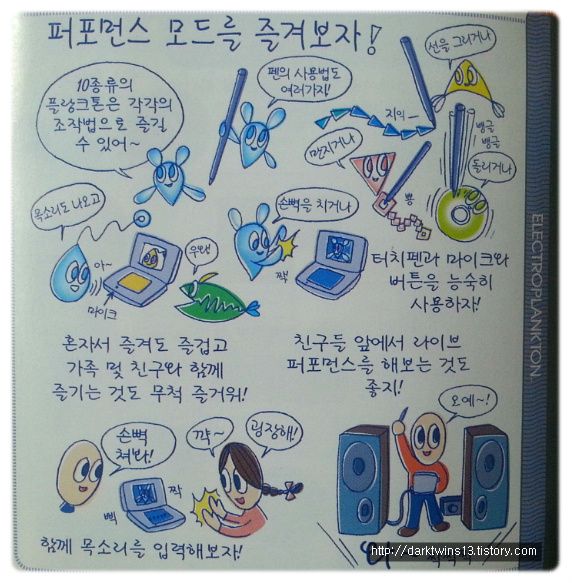 퍼포먼스 모드를 즐겨보자!
10종류의
플랑크톤은 각각의
조작법으로 즐길
수 있어~
펜의 사용법도
여러가지!
선을 그리거나
지익
만지거나
뿅
빙글
빙글
돌리거나
목소리도 나오고
아~
마이크
우와!
손뼉을 치거나
짝
터치펜과 마이크와
버튼을 능숙히
사용하자!
혼자서 즐겨도 즐겁고
가족 및 친구와 함께
즐기는 것도 무척 즐거워!
친구들 앞에서 라이브
퍼포먼스를 해보는 것도
좋지!
손뼉
쳐봐!
꺅~
굉장해!
짝
삑
함께 목소리를 입력해보자!
오예~!
ELECTROPLANKTON
http://darktwins13.tistory.com